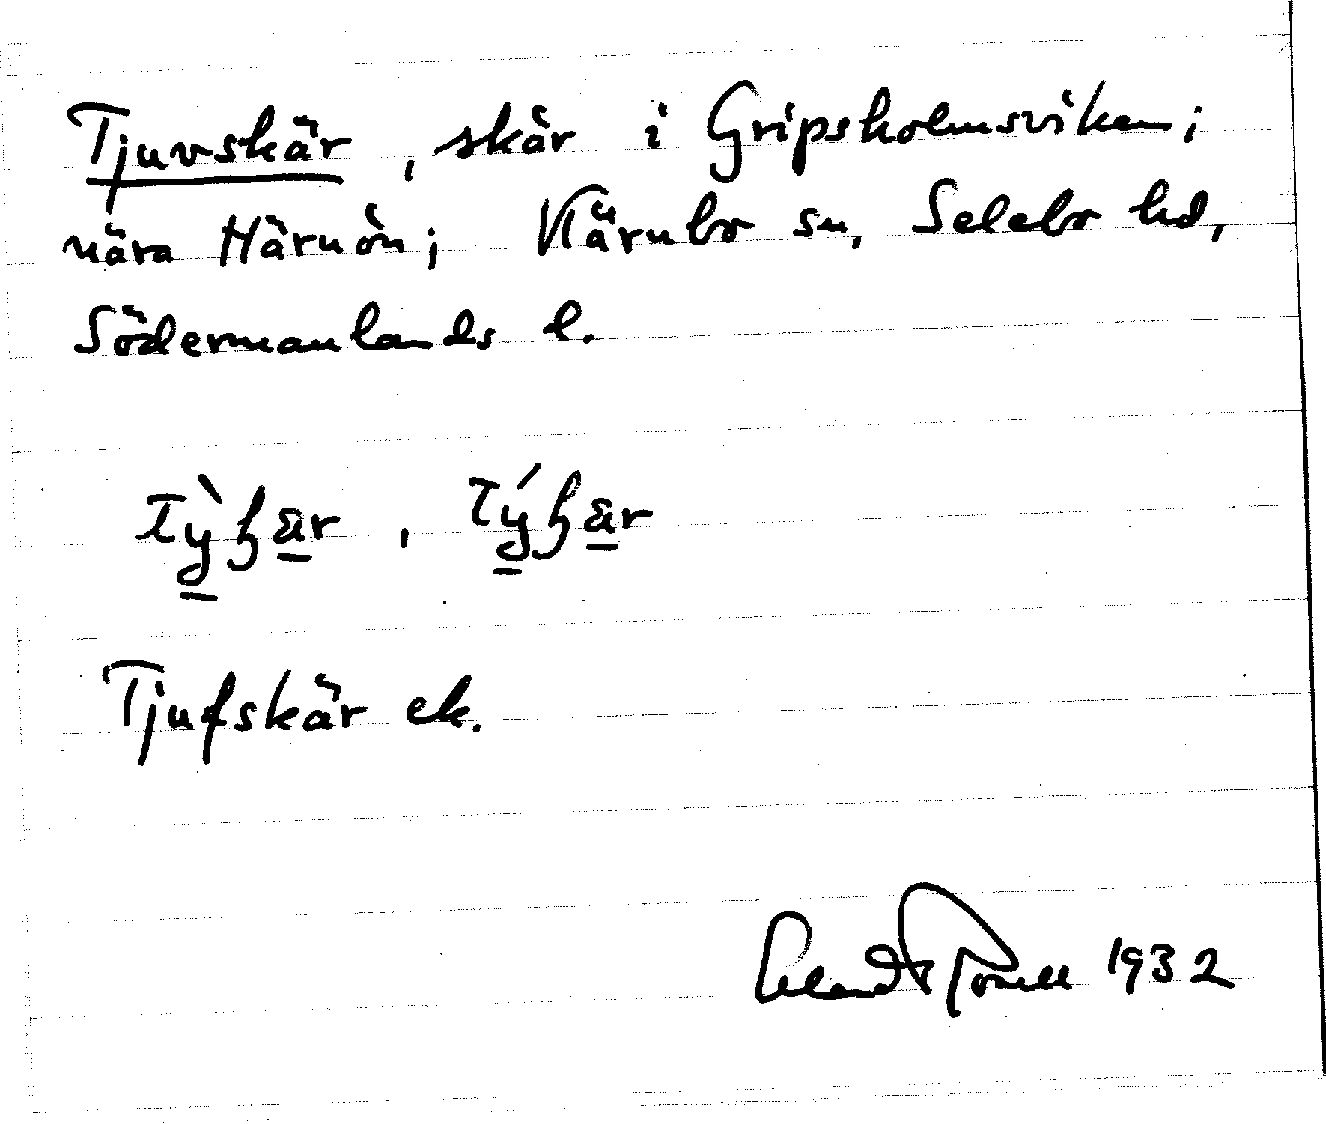 Tjuvskär, skär i Gripsholmsviken;
nära Härnön; Kärnbo sn, Selebo hd,
Södermanlands l.
Tjufskär ek.
1932